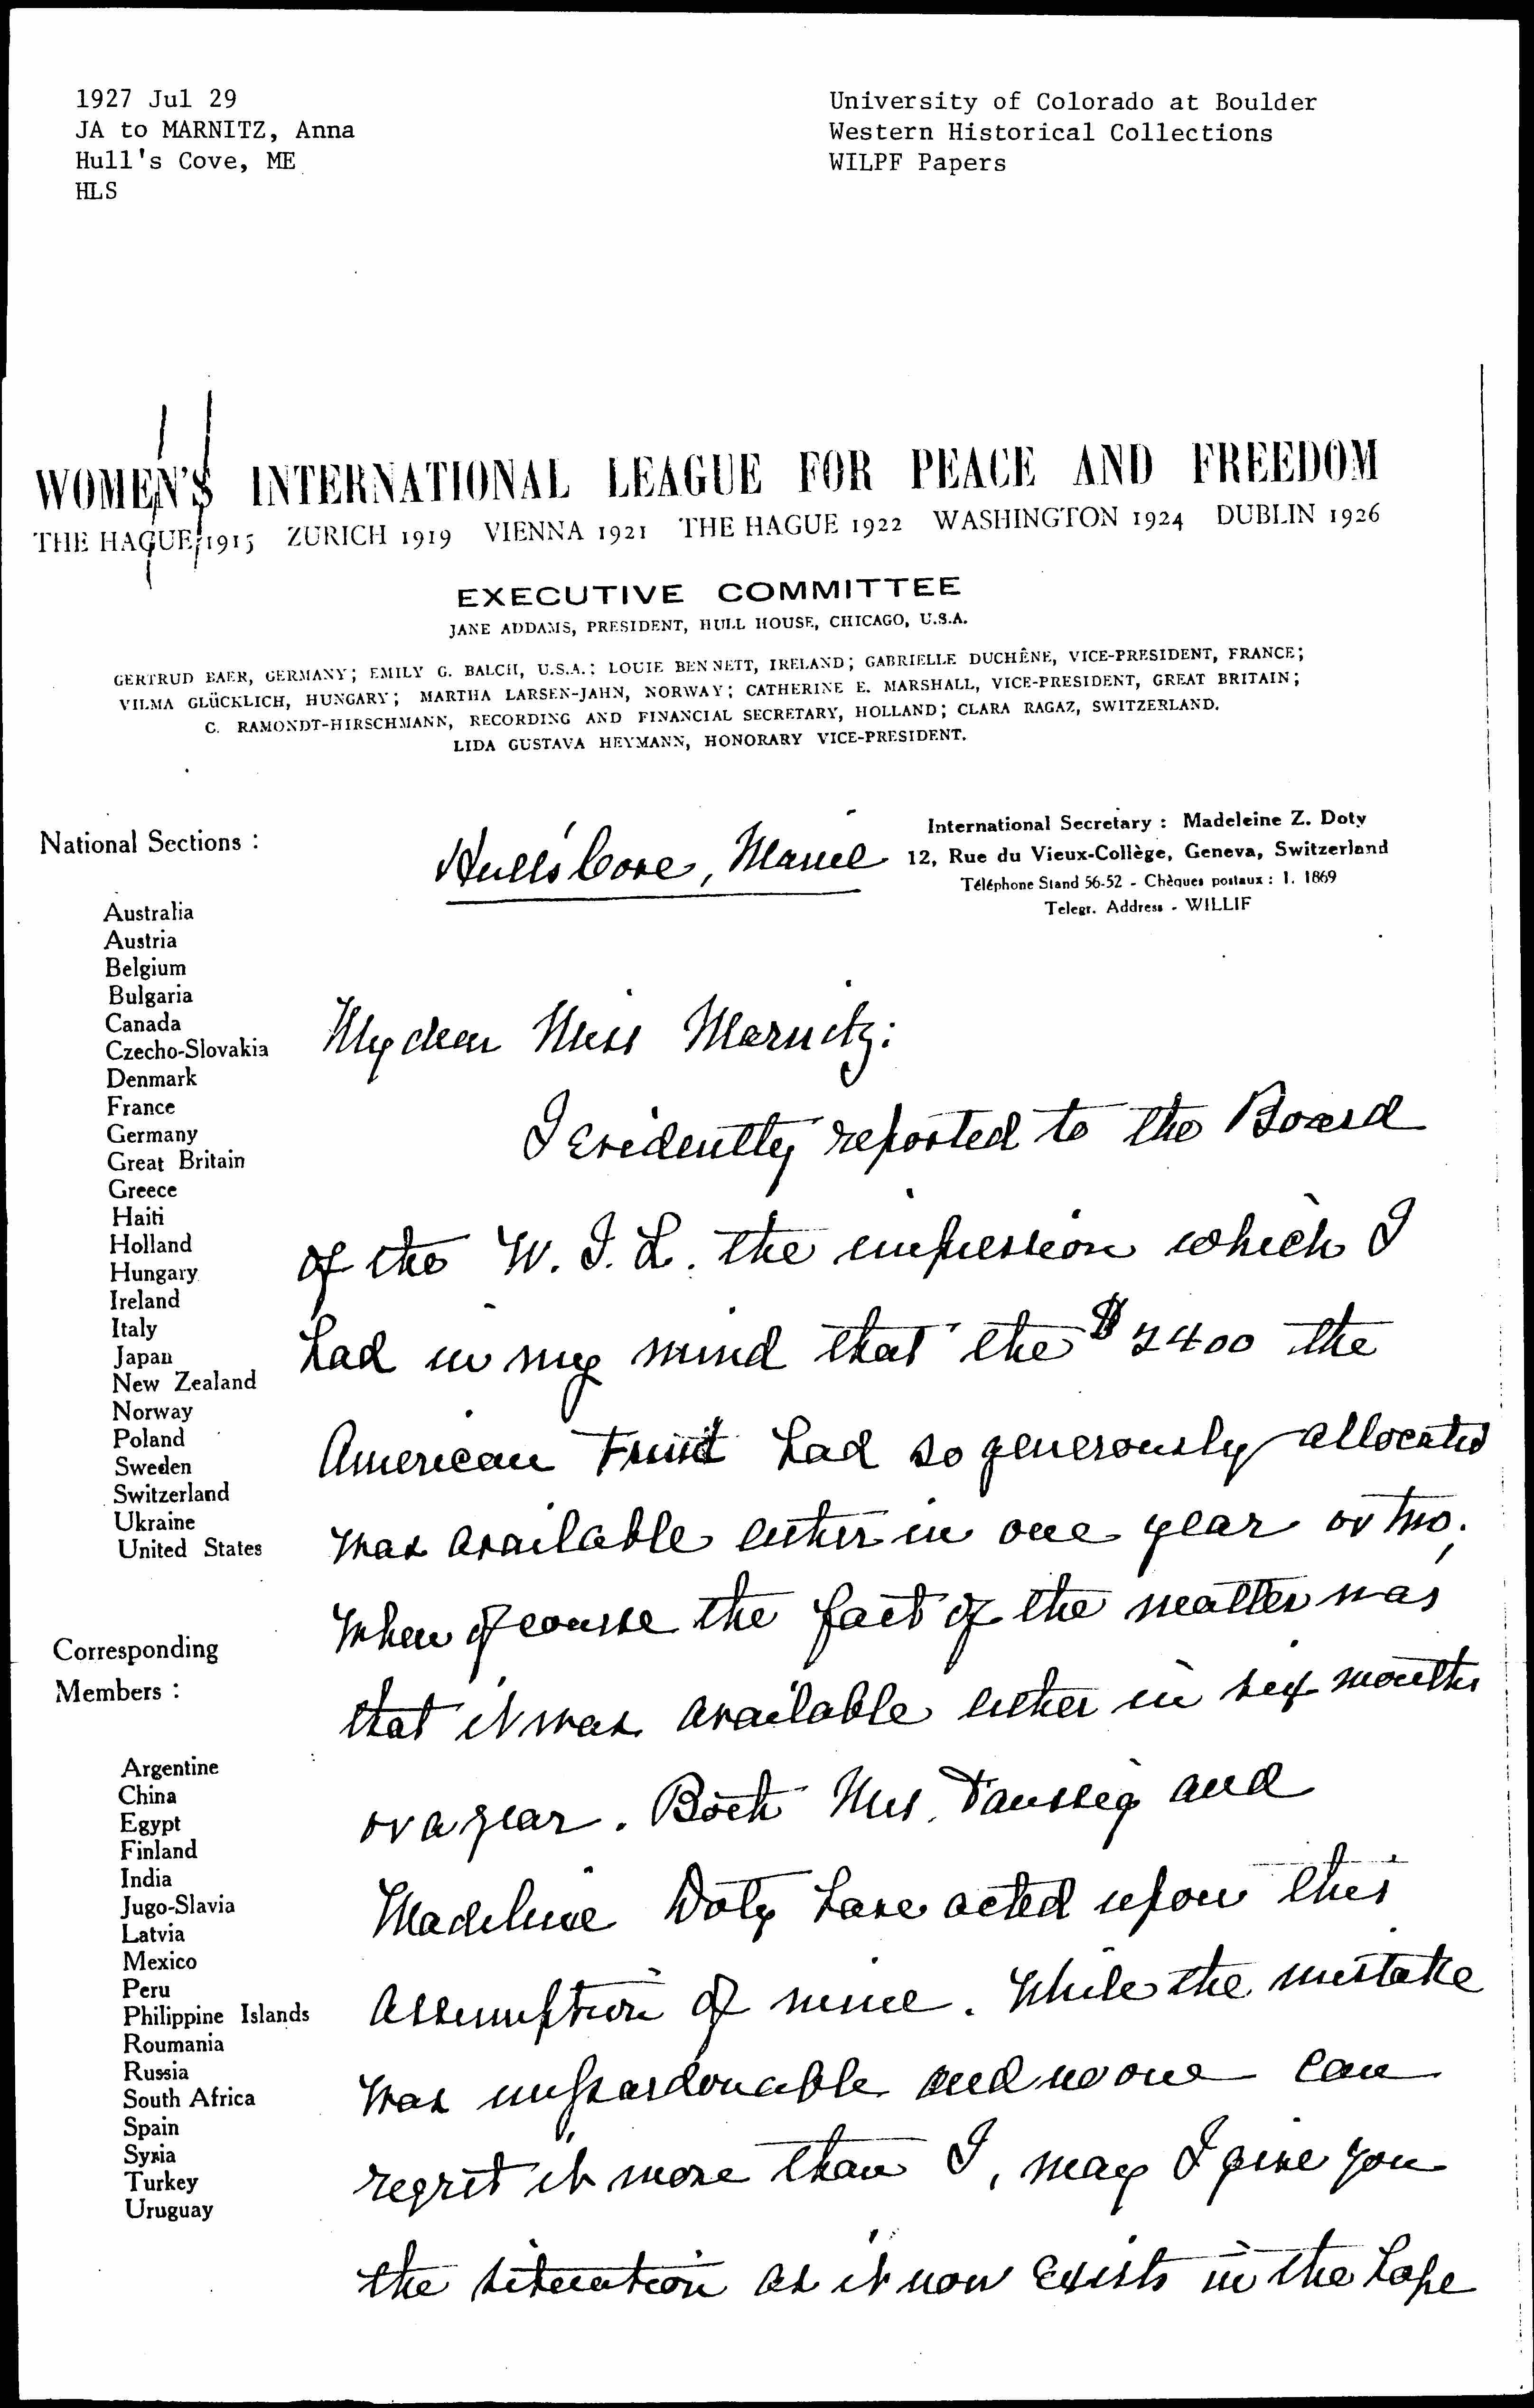 1927 Jul 29
JA to MARNITZ, Anna
Hull's Cove, ME
HLS
University of Colorado at Boulder
Western Historical Collections
WILPF Papers
WOMEN'S INTERNATIONAL LEAGUE FOR PEACE AND FREEDOM
THE HAGUE 1915 ZURICH 1919 VIENNA 1921 THE HAGUE 1922 WASHINGTON 1924 DUBLIN 1926
EXECUTIVE COMMITTEE
JANE ADDAMS, PRESIDENT, HULL HOUSE, CHICAGO, U.S.A.
GERTRUD BAER, GERMANY; EMILY G. BALCH, U.S.A.; LOUIE BENNETT, IRELAND; GABRIELLE DUCHÊNE, VICE-PRESIDENT, FRANCE;
VILMA GLÜCKLICH, HUNGARY; MARTHA LARSEN-JAHN, NORWAY; CATHERINE E. MARSHALL, VICE-PRESIDENT, GREAT BRITAIN;
C. RAMONDT-HIRSCHMANN, RECORDING AND FINANCIAL SECRETARY, HOLLAND; CLARA RAGAZ, SWITZERLAND.
LIDA GUSTAVA HEYMANN, HONORARY VICE-PRESIDENT.
International Secretary : Madeleine Z. Doty
12, Rue du Vieux-Collège, Geneva, Switzerland
Téléphone Stand 56-52 - Chèques postaux : I. 1869
Telegr. Address - WILLIF
National Sections :
Australia
Austria
Belgium
Bulgaria
Canada
Czecho-Slovakia
Denmark
France
Germany
Great Britain
Greece
Haiti
Holland
Hungary
Ireland
Italy
Japan
New Zealand
Norway
Poland
Sweden
Switzerland
Ukraine
United States
Corresponding
Members :
Argentine
China
Egypt
Finland
India
Jugo-Slavia
Latvia
Mexico
Peru
Philippine Islands
Roumania
Russia
South Africa
Spain
Syria
Turkey
Uruguay
Hull's Cove, Maine
My dear Miss Marnitz:
I evidently reported to the Board
of the W. I. L. the impression which I
had in my mind that the $2400 the
American Fund had so generously allocated
was available either in one year or two,
when of course the fact of the matter was
that it was available either in six months
or a year. Both Mrs. Taussig and
Madeline Doty have acted upon this
assumption of mine. While the mistake
was unpardonable and no one can
regret it more than I, may I give you
the situation as it now exists in the hope